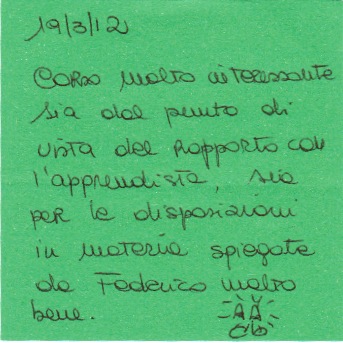 19/3/12
Corso molto interessante
sia dal punto di
vista del rapporto con
l'apprendista, sia
per le disposizioni
in materia spiegate
da Federico molto
bene.